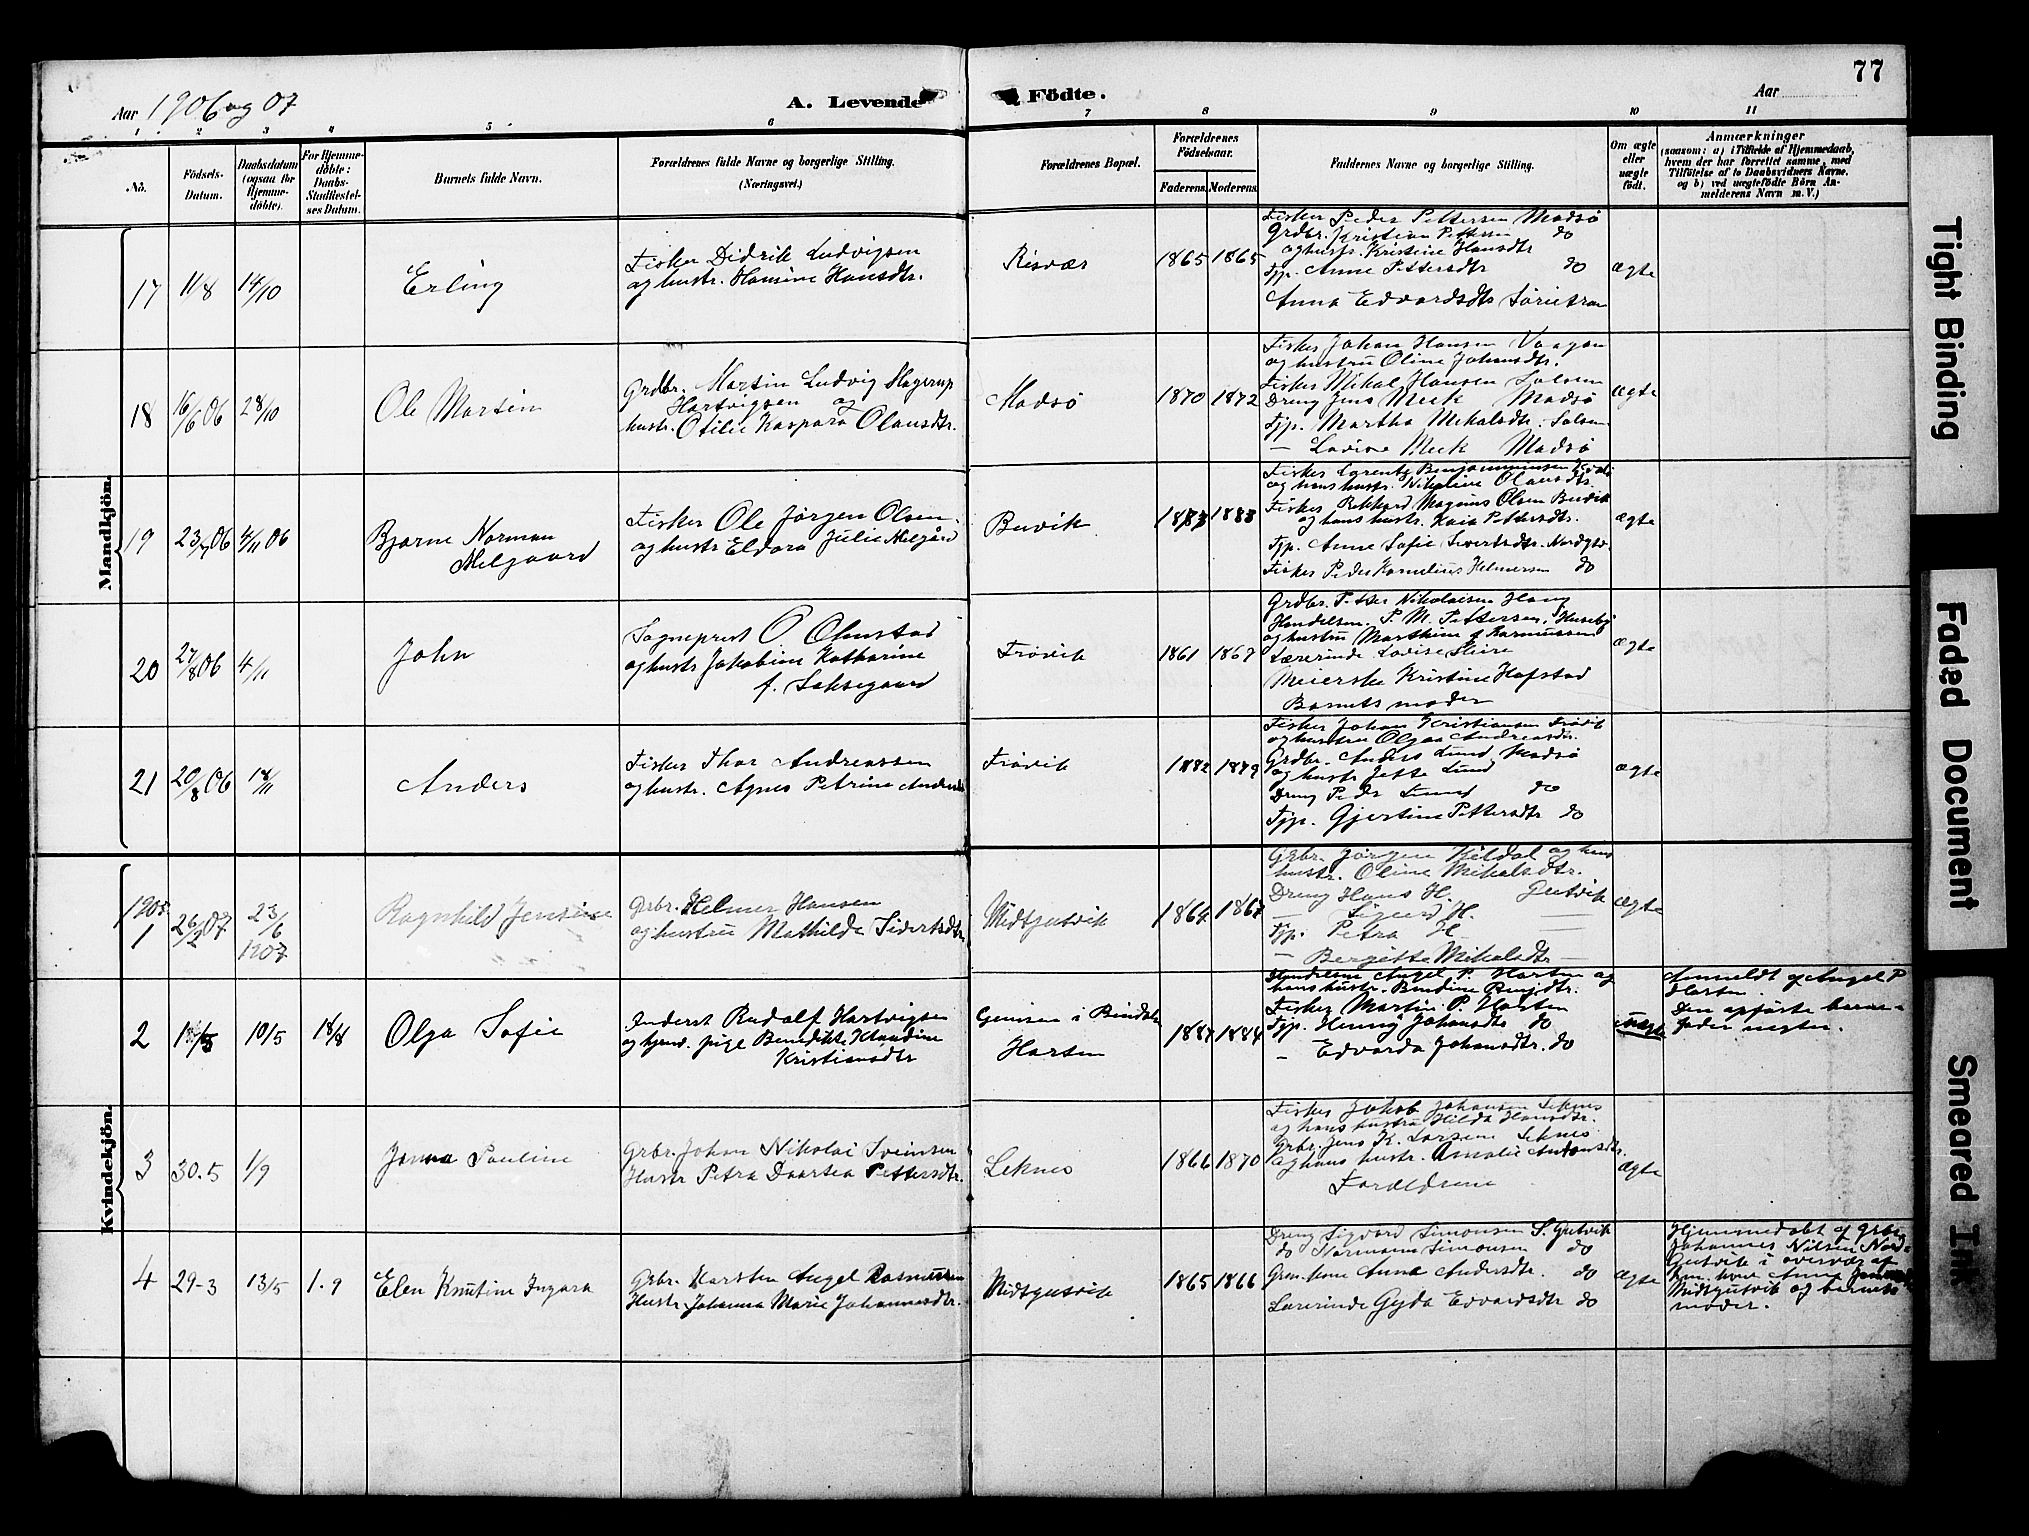 77
Aar 1906 og 07
A. Levende Födte.
Aar
1 2 3 4 5 6 7 8 9 10 11
No.
Födsels-Datum.
Daabsdatum (ogsaa for Hjemme-döbte).
For Hjemme-döbte: Daabs-Stadfæstel-ses Datum.
Barnets fulde Navn.
Forældrenes fulde Navne og borgerlige Stilling.
(Næringsvei.)
Forældrenes Bopæl.
Forældrenes Födselsaar.
Faderens. Moderens.
Faddernes Navne og borgerlige Stilling.
Om ægte eller uægte födt.
Anmærkninger
(saasom: a) i Tilfælde af Hjemmedaab, hvem der har forrettet samme, med Tilföielse af to Daabsvidners Navne. og b) ved uægtefödte Börn An-melderens Navn m. V.)
Mandkjön.
17 11/8 14/10 Erling
Fisker Didrik Ludvigsen
og hustr. Hansine Hansdtr.
Risvær 1865 1865
Fisker Peder Pettersen Madsø
Grdbr. Kristian Pettersen do
og hustr. Kristine Hansdtr
Pjp. Anne Pettersdtr do
Anna Edvardsdtr
ægte
18 16/6 06 28/10 Ole Martin
Grdbr. Martin Ludvig Hagerup
Hartvigsen og
hustr. Otilie Kaspara Olausdtr.
Madsø 1870 1872
Fisker Johan Hansen
og hustru Oline Johansdtr.
Fisker Mikal Hansen Salsen
Dreng Jens Meek Madsø
Pjp. Martha Mikalsdtr. Salsen
— Lovise Meek Madsø
ægte
19 23/7 06 4/11 06 Bjarne Norman
Melgaard
Fisker Ole Jørgen Olsen
og hustr Eldora Julie Melgård
Buvik 1883
Fisker Lorentz Benjaminsen
og hans hustr. Nikoline Olausdtr.
Fisker Rikhard Magnus Olsen Buvik
og hans hustr. Kaia Pettersdtr.
Pjp. Anne Sofie Sivertsdtr.
Fisker Peder Kornelius Helmersen do
ægte
20 27/8 06 4/11 John
Sogneprest O. Olmstad
og hustr Jakobine Katharine
f. Saksegaard
Frøvik 1861 1867
Grdbr. Petter Nikolaisen Haug
Handelsm. P. M. Pettersen, Huseby
og hustru Marthine f Rasmussen
Lærerinde Lovise
Meierske Kristine Hafstad
Barnets moder
ægte
21 20/8 06 18/11 Anders
Fisker Thor Andreassen
og hustr. Agnes Petrine
Frøvik 1882 1879
Fisker Johan Kristiansen Frøvik
og hustru Olgaa Andreasdtr.
Grdbr. Anders Lund Madsø
og hustr Jette Lund
Dreng Peder Lund do
Pjp. Gjertine Pettersdtr do
ægte
Kvindekjön.
1905
1 26/2 07 23/6 1907 Ragnhild Jensine
Grbr. Helmer Hansen
og hustru Mathilde Sivertsdtr
Midtgutvik 1864 1867
Grbr. Jørgen Kjeldal og hans
hustr. Oline Mikalsdtr.
Dreng Hans H. Gutvik
— Sigurd H. —
Pjp. Petra H —
— Bergitte Mikalsdtr —
ægte
2 10/5 18/8 Olga Sofie
Inderst Rudolf Hartvigsen
og tjend. pige Benedikte Klaudine
Kristiansdtr
i Bindalen
Horsen 1887 1884
Handelsm Angel P. Horsen og
hans hustr. Bendine Benjdtr.
Fisker Martin P. Horsen
Pjp. Henny Johansdtr do
— Edvarda Johansdtr. do
uægte
Anmeldt af Angel P
Horsen.
Den opførte barne-
fader negter.
3 30.5 1/9 Janna Pauline
Grbr. Johan Nikolai Sveinsen
Hustr Petra Daartea Pettersdtr.
Leknes 1866 1870
Fisker Jakob Johansen Leknes
og hans hustru Hilda Hansdtr.
Grbr. Jens K. Larsen Leknes
og hans hustr. Amalie Antonsdtr.
Foreldrene
ægte
4 29-3 13/5 1.9 Elen Knutine Ingara
Grbr. Karsten Angel Rasmussen
Hustr Johanna Marie Johannesdtr.
Midtgutvik 1865 1866
Dreng Sigvard Simonsen S. Gutvik
do Normann Simonsen do
Grm. kone Anna Andersdtr. do
Lærerinde Gyda Edvardsdtr do
ægte
Hjemmedøbt af grbr.
Johannes Nilsen Nor-
Gutvik i overvær af
kone Anna
Midtgutvik og barnets
moder.
Tight Binding
Faded Document
Smeared Ink